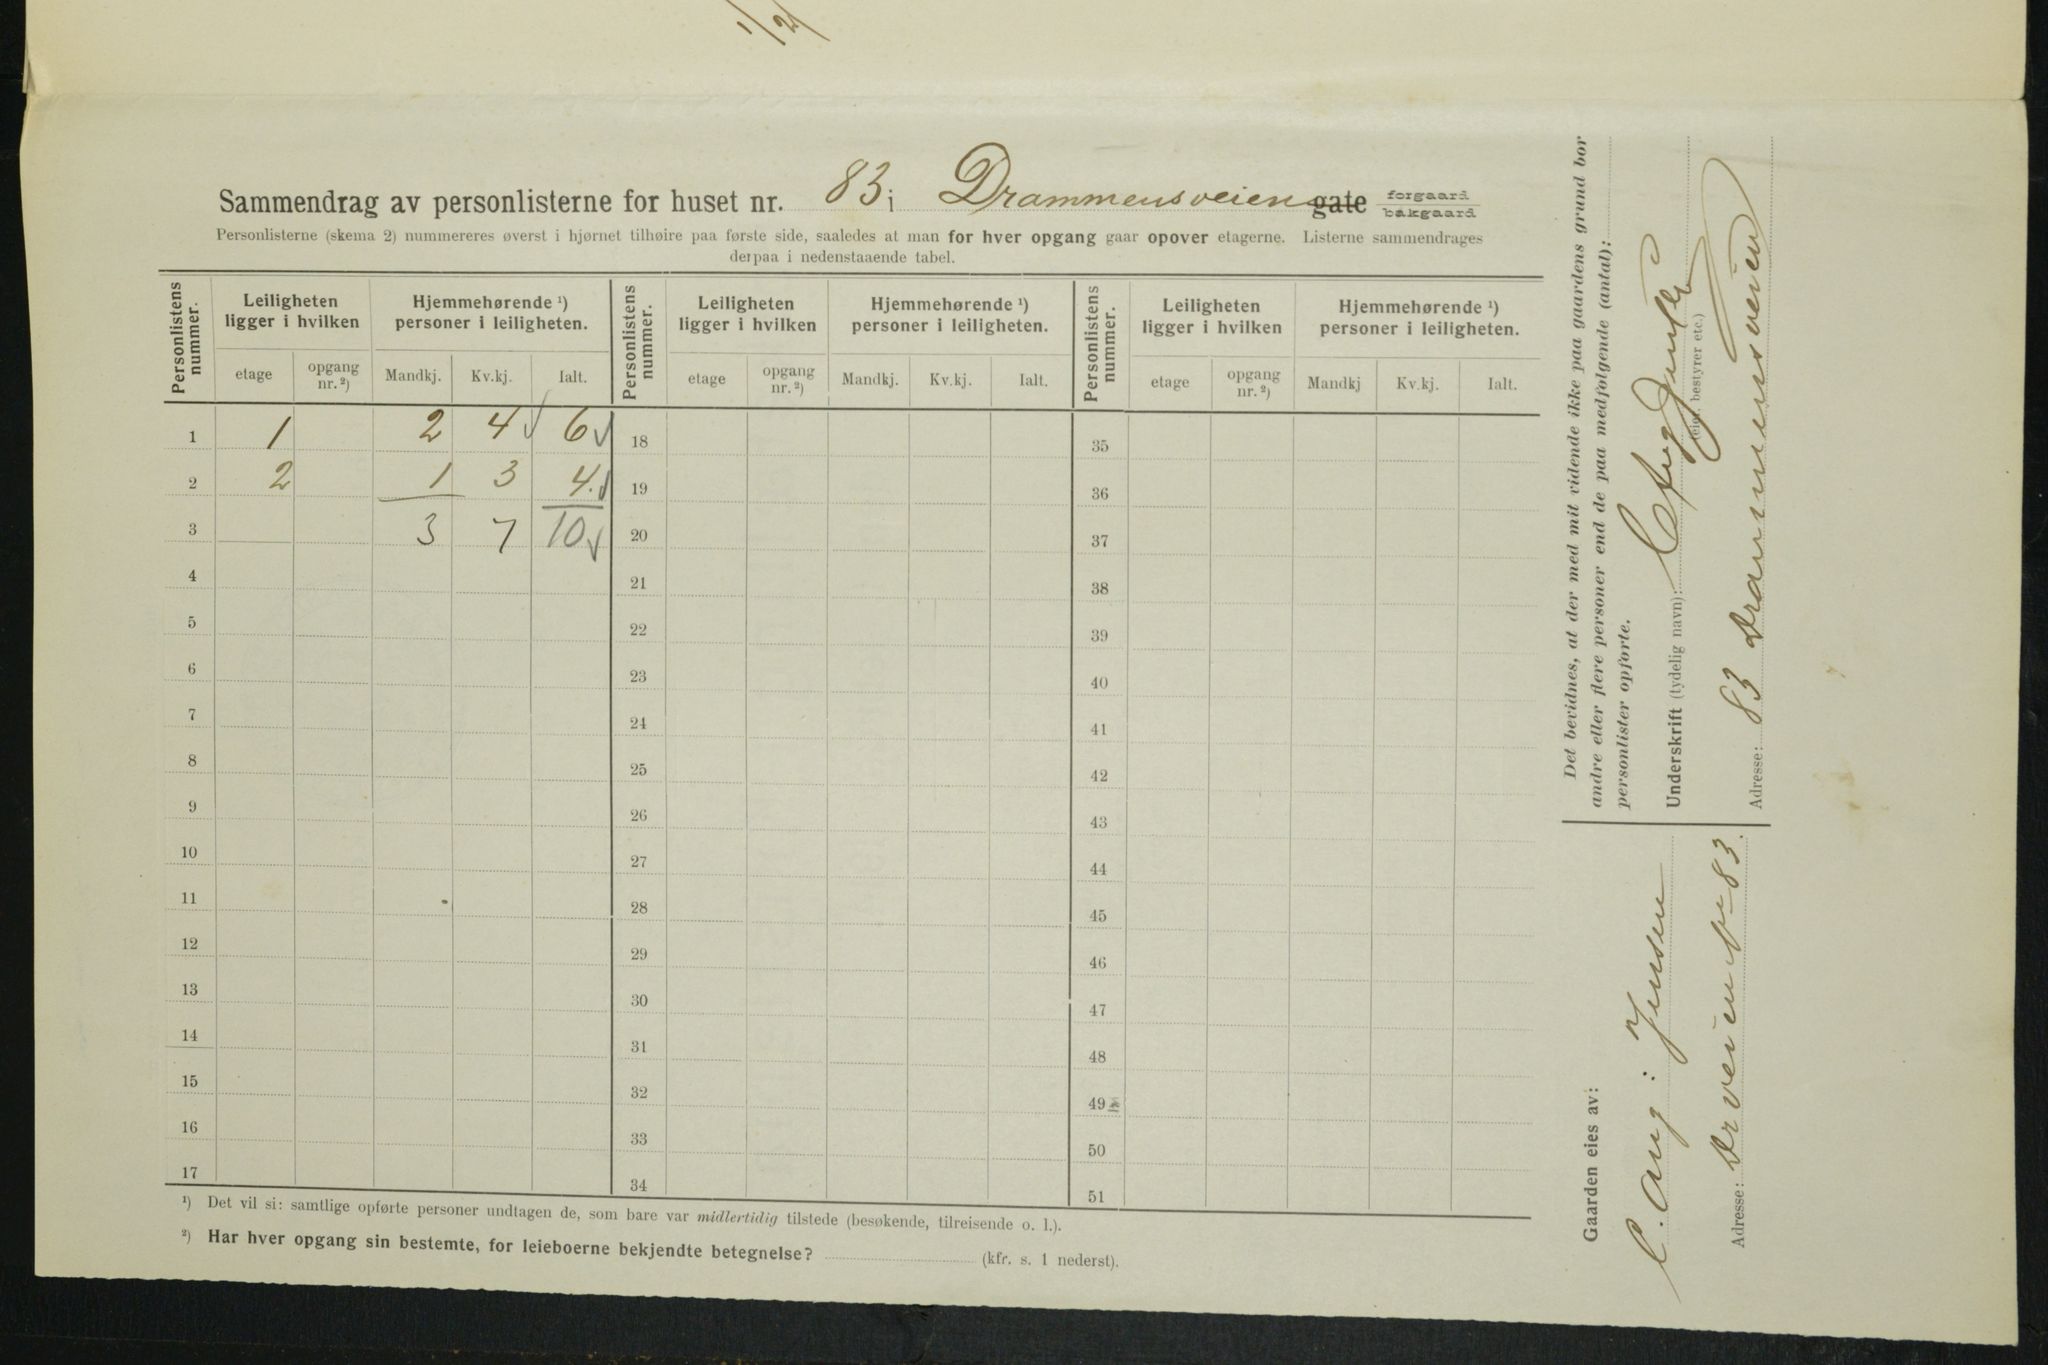 1/2
Sammendrag av personlisterne for huset nr. 83 i Drammensveien gate forgaard bakgaard
Personlisterne (skema 2) nummereres øverst i hjørnet tilhøire paa første side, saaledes at man for hver opgang gaar opover etagerne. Listerne sammendrages
derpaa i nedenstaaende tabel.
Personlistens nummer. Leiligheten ligger i hvilken Hjemmehørende ¹) personer i leiligheten. Personlistens nummer. Leiligheten ligger i hvilken Hjemmehørende ¹) personer i leiligheten. Personlistens nummer. Leiligheten ligger i hvilken Hjemmehørende ¹) personer i leiligheten.
etage opgang nr. ²) Mandkj. Kv.kj. Ialt. etage opgang nr. ²) Mandkj. Kv.kj. Ialt. etage opgang nr. ²) Mandkj Kv.kj. Ialt.
1 1 2 4 6 18 35
2 2 1 3 4. 19 36
3 3 7 10 20 37
4 21 38
5 22 39
6 23 40
7 24 41
8 25 42
9 26 43
10 27 44
11 28 45
12 29 46
13 30 47
14 31 48
15 32 49
16 33 50
17 34 51
¹) Det vil si: samtlige opførte personer undtagen de, som bare var midlertidig tilstede (besøkende, tilreisende o. l.).
²) Har hver opgang sin bestemte, for leieboerne bekjendte betegnelse? (kfr. s. 1 nederst).
Det bevidnes, at der med mit vidende ikke paa gaardens grund bor
andre eller flere personer end de paa medfølgende (antal):
personlister opførte.
Underskrift (tydelig navn):
(eier, bestyrer etc.)
Adresse: 83 Drammensveien
Gaarden eies av:
C. Aug: Jensen
Adresse: Drveien No 83.